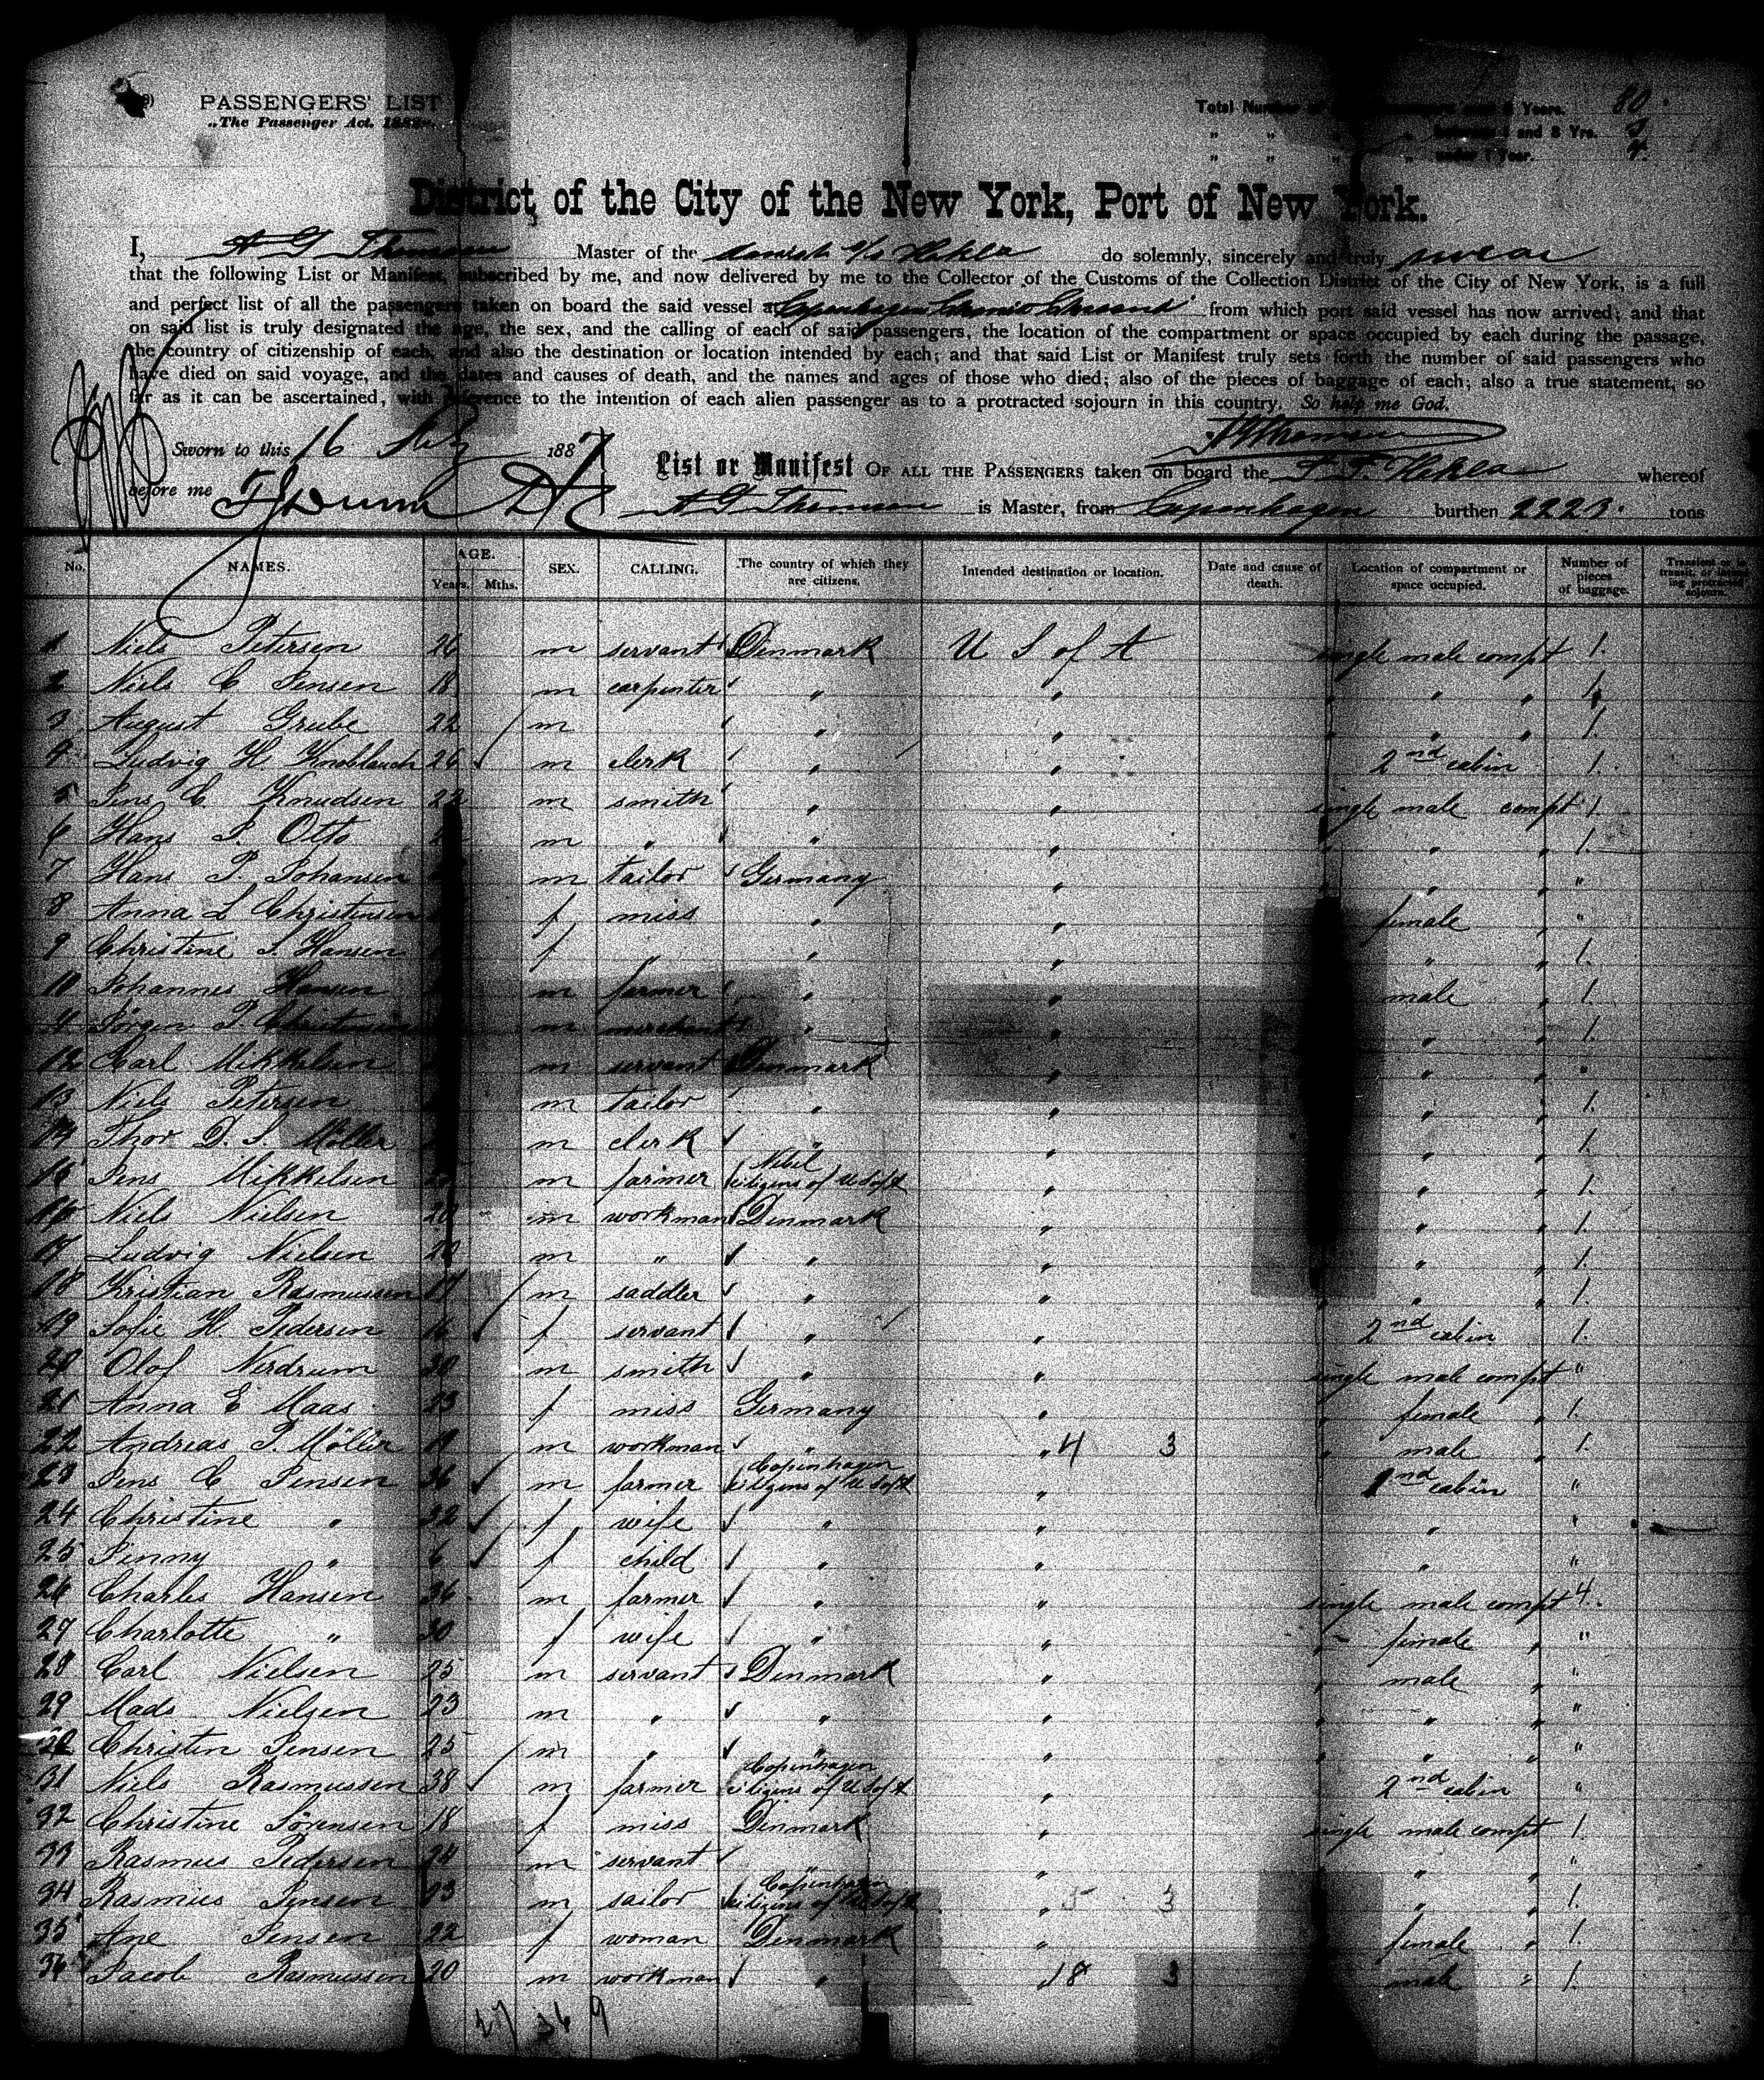 PASSENGERS' LIST
„The Passenger Act. 1882".
Total Number of Passengers over 8 Years. 80.
„ „ „ „ between 1 and 8 Yrs.
„ „ „ „ under 1 Year.
District of the City of the New York, Port of New York.
I, A G Thomsen Master of the danish s/s Hekla do solemnly, sincerely and truly swear
that the following List or Manifest, subscribed by me, and now delivered by me to the Collector of the Customs of the Collection District of the City of New York, is a full
and perfect list of all the passengers taken on board the said vessel at Copenhagen from which port said vessel has now arrived; and that
on said list is truly designated the age, the sex, and the calling of each of said passengers, the location of the compartment or space occupied by each during the passage,
the country of citizenship of each, and also the destination or location intended by each; and that said List or Manifest truly sets forth the number of said passengers who
have died on said voyage, and the dates and causes of death, and the names and ages of those who died; also of the pieces of baggage of each; also a true statement, so
far as it can be ascertained, with reference to the intention of each alien passenger as to a protracted sojourn in this country. So help me God.
AGThomsen
Sworn to this 16 1887
before me
List or Manifest OF ALL THE PASSENGERS taken on board the S. S. Hekla whereof
A G Thomsen is Master, from Copenhagen burthen 2223. tons
No. NAMES. AGE. Years. Mths. SEX. CALLING. The country of which they are citizens. Intended destination or location. Date and cause of death. Location of compartment or space occupied. Number of pieces of baggage. Transient or in transit, or intending protracted sojourn.
1 Niels Petersen 26 m servant Denmark U S of A single male compt 1.
2 Niels C Jensen 18 m carpenter „ „ „ „ „ 1.
3 August Grube 22 m „ „ „ „ „ 1.
4 Ludvig H. Knoblauch 26 m clerk „ „ 2nd cabin 1.
5 Jens C Knudsen 22 m smith „ „ single male compt 1.
6 Hans P. Otto m „ „ „ „ „ „ 1.
7 Hans P. Johansen m tailor Germany „ „ „ „ "
8 Anna L Christensen f miss „ „ female „ "
9 Christine S. Hansen f „ „ „ „ 1.
10 Johannes Hansen m farmer „ „ male „ 1.
11 Jörgen P. Christensen m merchant „ „ „ „ 1.
12 Carl Mikkelsen m servant Denmark „ „ „ "
13 Niels Petersen m tailor „ „ „ „ 1.
14 Thor D. S. Möller m clerk „ „ „ „ 1.
15 Jens Mikkelsen m farmer Nibel citizens of U S of A „ „ „ 1.
16 Niels Nielsen 20 m workman Denmark „ „ „ 1.
17 Ludvig Nielsen 20 m „ „ „ „ „ 1.
18 Kristian Rasmussen 17 m saddler „ „ „ „ „ 1.
19 Sofie H. Pedersen 16 f servant „ „ 2nd cabin 1.
20 Olof Nerdrum 30 m smith „ „ single male compt "
21 Anna E Maas 23 f miss Germany „ „ female „ 1.
22 Andreas P. Möller 19 m workman „ „ 4 3 „ male „ 1.
23 Jens C Jensen 36 m farmer Copenhagen citizens of U S of A „ 2nd cabin "
24 Christine „ 32 f wife „ „ „ "
25 Jenny „ 6 f child „ „ „ "
26 Charles Hansen 36 m farmer „ „ single male compt 4.
27 Charlotte „ 30 f wife „ „ „ female „ "
28 Carl Nielsen 25 m servant Denmark „ „ male „ "
29 Mads Nielsen 23 m „ „ „ „ „ „ "
30 Christen Jensen 25 m „ „ „ „ „ „ "
31 Niels Rasmussen 38 m farmer Copenhagen citizens of U S of A „ 2nd cabin "
32 Christine Sörensen 18 f miss Denmark „ single male compt 1.
33 Rasmus Pedersen 24 m servant „ „ „ „ "
34 Rasmus Jensen 23 m sailor Copenhagen citizens of U S of A „ 5 3 „ „ 1.
35 Ane Jensen 22 f woman Denmark „ female „ 1.
36 Jacob Rasmussen 20 m workman „ „ 18 3 male „ 1.
27 36 9